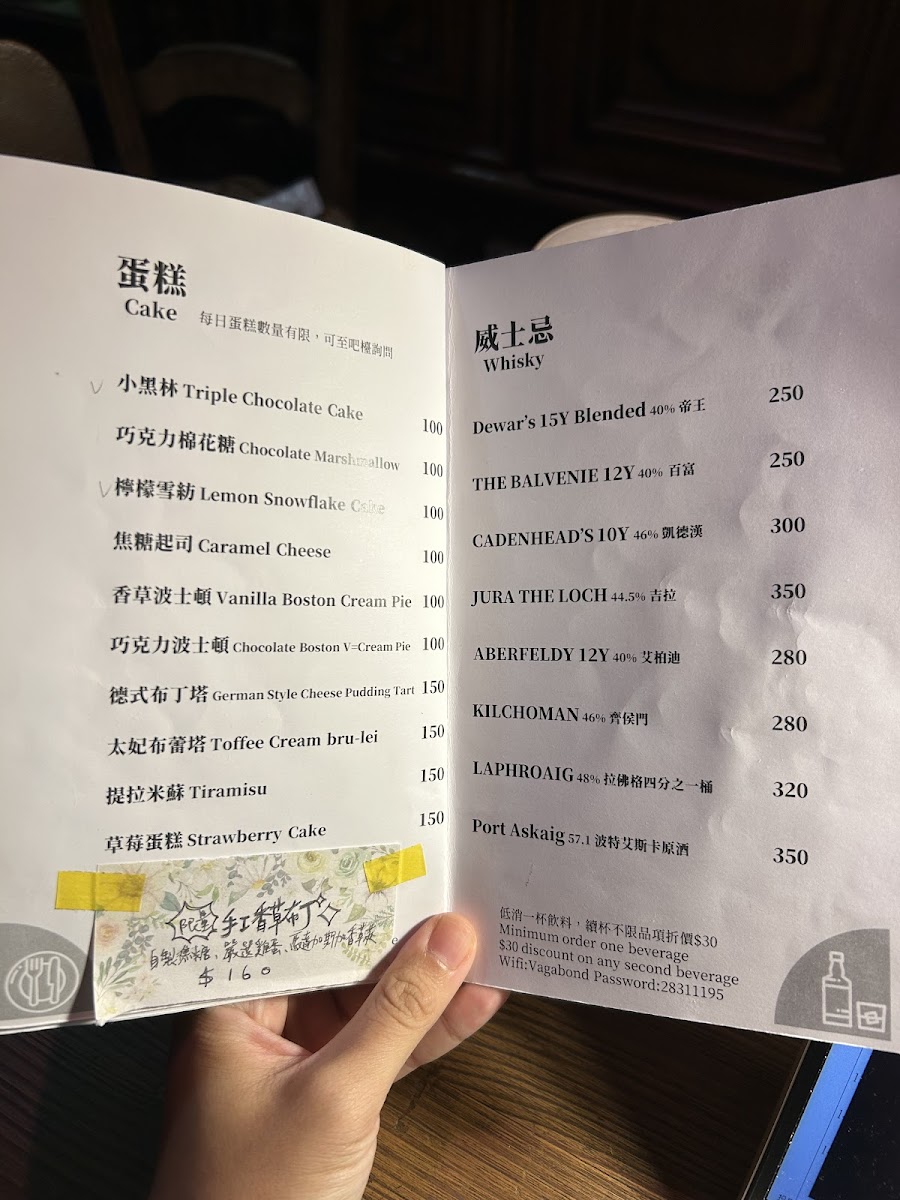 蛋糕
Cake 每日蛋糕數量有限，可至吧檯詢問
小黑林 Triple Chocolate Cake 100
巧克力棉花糖 Chocolate Marshmallow 100
檸檬雪紡 Lemon Snowflake Cake 100
焦糖起司 Caramel Cheese 100
香草波士頓 Vanilla Boston Cream Pie 100
巧克力波士頓 Chocolate Boston V=Cream Pie 100
德式布丁塔 German Style Cheese Pudding Tart 150
太妃布蕾塔 Toffee Cream bru-lei 150
提拉米蘇 Tiramisu 150
草莓蛋糕 Strawberry Cake 150
限量 手工香草布丁
自製焦糖、嚴選雞蛋、馬達加斯加香草莢
$160
威士忌
Whisky
Dewar's 15Y Blended 40% 帝王 250
THE BALVENIE 12Y 40% 百富 250
CADENHEAD'S 10Y 46% 凱德漢 300
JURA THE LOCH 44.5% 吉拉 350
ABERFELDY 12Y 40% 艾柏迪 280
KILCHOMAN 46% 齊侯門 280
LAPHROAIG 48% 拉佛格四分之一桶 320
Port Askaig 57.1 波特艾斯卡原酒 350
低消一杯飲料，續杯不限品項折價$30
Minimum order one beverage
$30 discount on any second beverage
Wifi:Vagabond Password:28311195